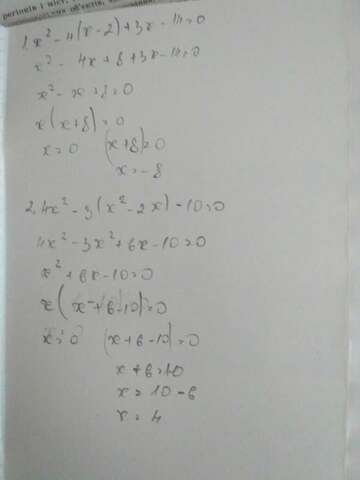 1. x² - 4(x-2)+3x-14=0
x² - 4x+8+3x-14=0
x² - x+8=0
x(x+8)=0
x=0 (x+8)=0
x=-8
2. 4x² - 3(x²-2x)-10=0
4x²-3x²+6x-10=0
x²+6x-10=0
x(x+6-10)=0
x=0 (x+6-10)=0
x+6=10
x=10-6
x=4